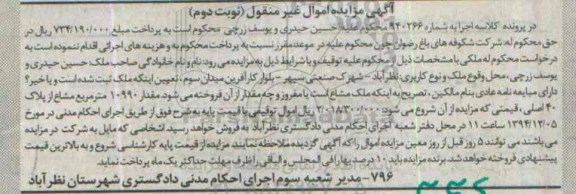 آگهی مزایده اموال غیر منقول (نوبت دوم)
در پرونده کلاسه اجرا به شماره ۹۴۰۲۶۶ محکوم علیه حسین حیدری و یوسف زرچی محکوم است به پرداخت مبلغ ۷۳۴/۱۹۰/۰۰۰ ریال در
حق محکوم له: شرکت شکوفه های باغ رضوان چون محکوم علیه در موعد مقرر نسبت به پرداخت محکوم به و هزینه های اجرائی اقدام ننموده است به
درخواست محکوم له ملکی با مشخصات ذیل از محکوم علیه توقیف و با شرایط ذیل به مزایده می رود: نام و نام خانوادگی صاحب ملک حسین حیدری و
یوسف زرچی، محل وقوع ملک و نوع کاربری: نظرآباد - شهرک صنعتی سپهر - بلوار کارآفرین میدان سوم، تعیین اینکه ملک ثبت شده است و یا خیر؟
دارای مبایعه نامه عادی بنام مالکین، تصریح به اینکه ملک مشاع است یا مفروز و چه مقدار از آن فروخته می شود: مقدار ۱۰۹۹۰ مترمربع مشاع از پلاک
۴۰ اصلی، قیمتی که مزایده از آن شروع می شود ۲/۰۱۸/۳۰۰/۰۰۰ ریال اموال توقیفی با قیمت پایه به شرح فوق از طریق اجرای احکام مدنی در مورخ
۱۳۹۴/۱۲/۰۵ ساعت ۱۱ در محل دفتر شعبه اجرای احکام مدنی دادگستری نظرآباد به فروش خواهد رسید اشخاصی که مایل به شرکت در مزایده
می باشند می توانند ۵ روز قبل از روز معین مزایده اموال را که آگهی گردیده ملاحظه نمایند. مزایده از قیمت پایه کارشناسی شروع و به بالاترین قیمت
پیشنهادی فروخته خواهد شد. برنده مزایده باید ۱۰ درصد بها را فی المجلس و الباقی را ظرف مهلت حداکثر یک ماه پرداخت نماید.
۷۹۶- مدیر شعبه سوم اجرای احکام مدنی دادگستری شهرستان نظرآباد